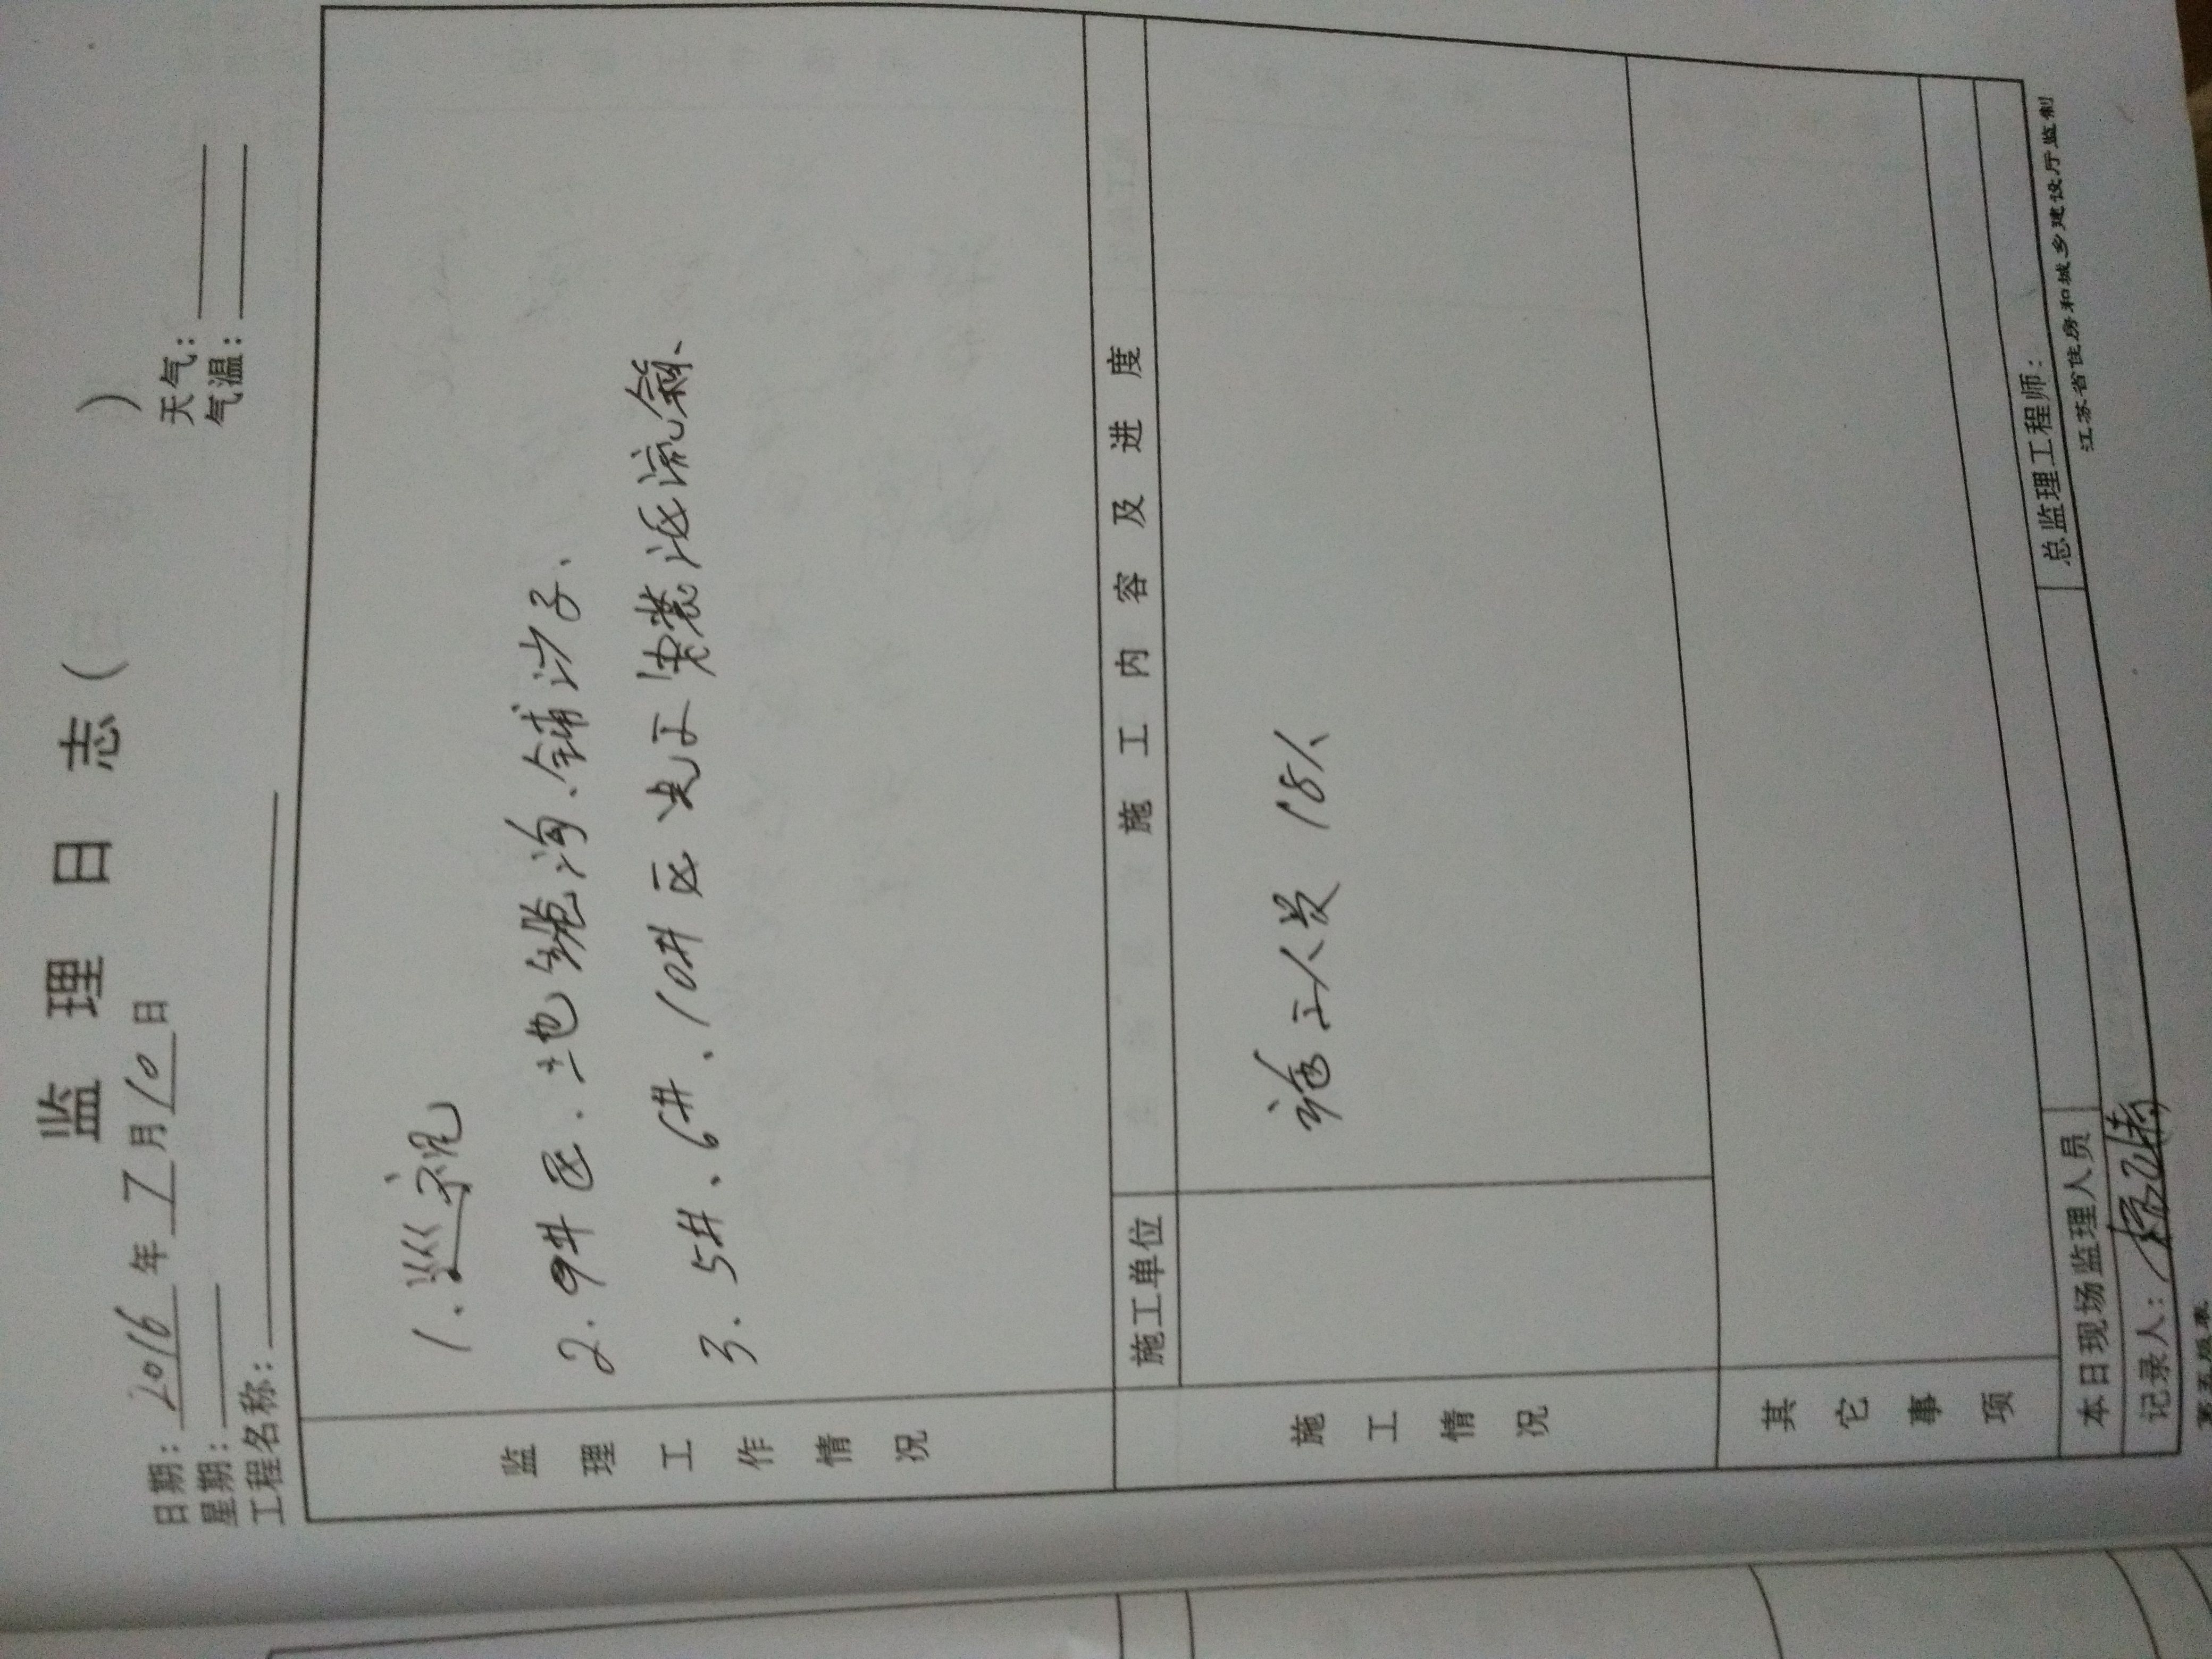 监理日志( )
日期：2016年7月10日
天气：
星期：
气温：
工程名称：
监理工作情况
1. 巡视
2. 9#区. 土地缆沟、铺沙子、
3. 5#、6#、10#区 安装汇流箱、
施工情况
施工单位
施工内容及进度
施工人员 18人
其它事项
本日现场监理人员
记录人：
总监理工程师：
第五版表
江苏省住房和城乡建设厅监制